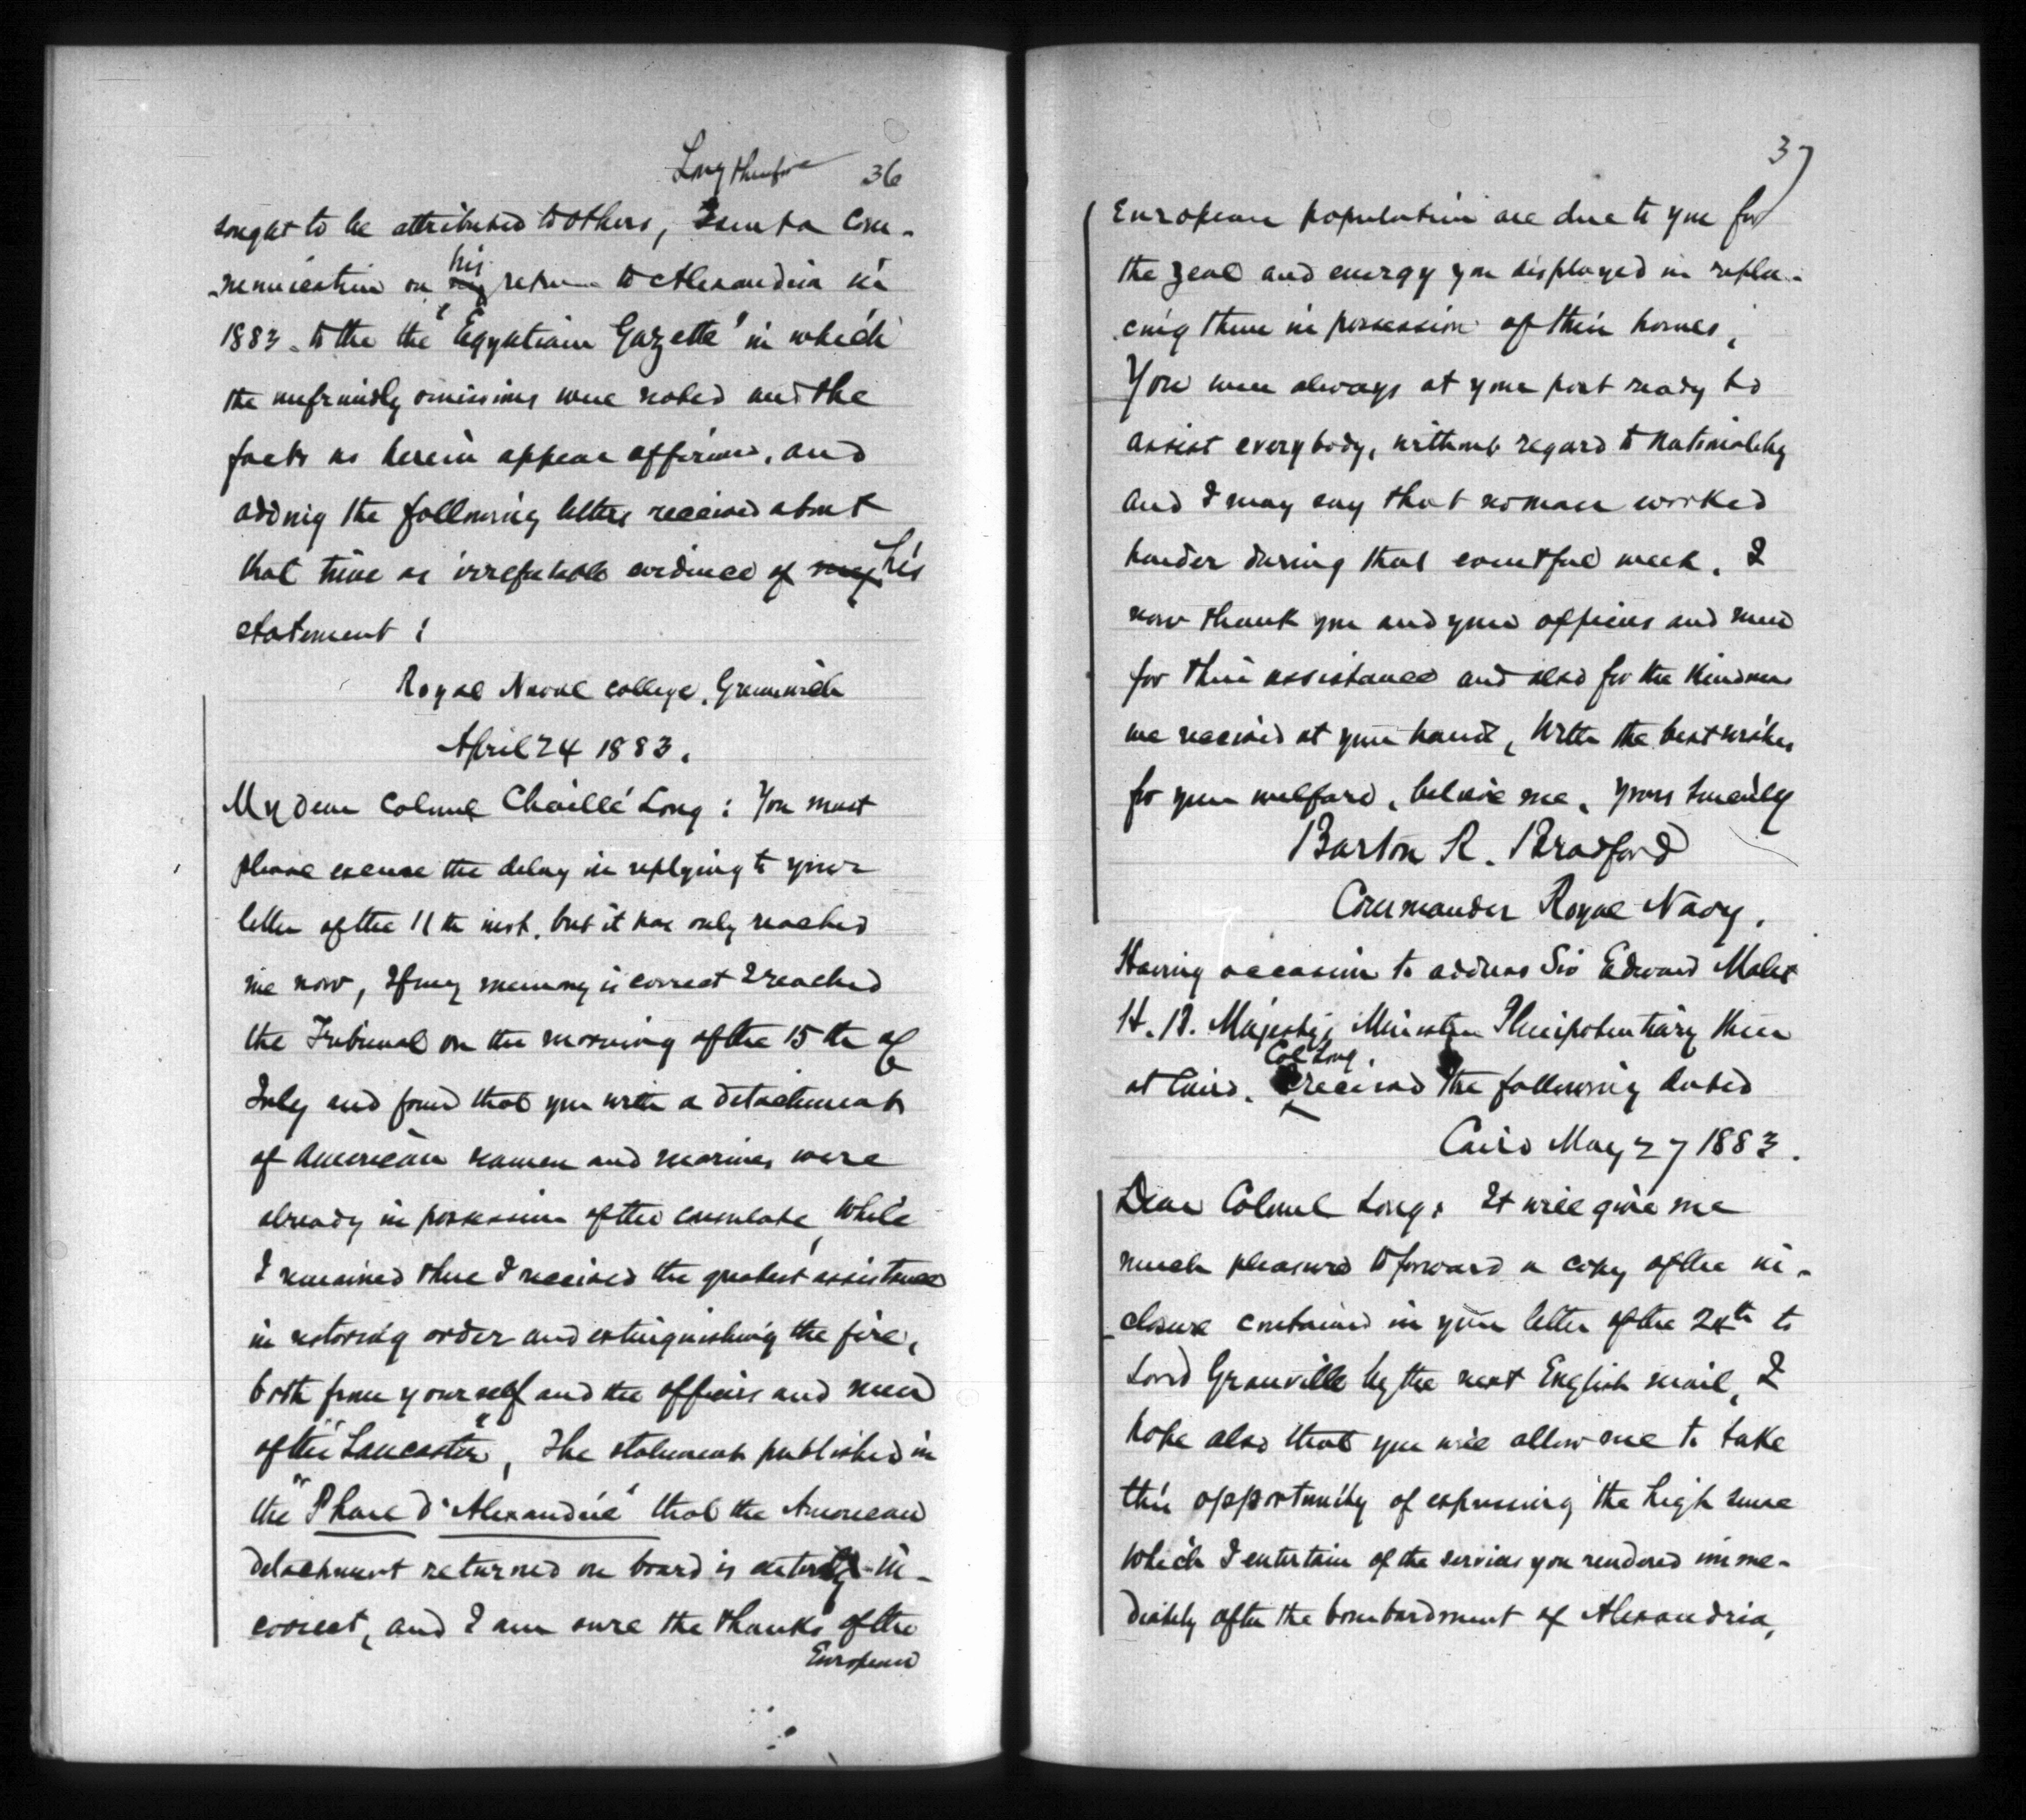 Long therefore 36
sought to be attributed to others, sent a com-
-munication on my his return to Alexandria in
1883 to the the "Egyptian Gazette" in which
the unfriendly omissions were noted and the
facts as herein appear affirmed, and
adding the following letters received about
that time as irrefutable evidence of my his
statement:
Royal Naval College, Greenwich
April 24 1883.
My dear Colonel Chaillé Long: You must
please excuse the delay in replying to your
letter of the 11th inst. but it has only reached
me now, If my memory is correct I reached
the Tribunal on the morning of the 15th of
July and found that you with a detachment
of American seamen and marines were
already in possession of the consulate, While
I remained there I received the greatest assistance
in restoring order and extinguishing the fire,
both from yourself and the officers and men
of the "Lancaster", The statement published in
the "Phare d'Alexandrie" that the American
detachment returned on board is entirely in-
correct, and I am sure the thanks of the
European
37
European population are due to you for
the zeal and energy you displayed in repla-
cing them in possession of their homes,
You were always at your post ready to
assist everybody, without regard to nationality
and I may say that no man worked
harder during that eventful week. I
now thank you and your officers and men
for their assistance and also for the kindness
we received at your hands, With the best wishes
for your welfare, believe me, yours sincerely
Barton R. Bradford
Commander Royal Navy.
Having occasion to address Sir Edward Malet
H. B. Majesty's Minister Plenipotentiary then
at Cairo. Col Long. received the following dated
Cairo May 27 1883.
Dear Colonel Long: It will give me
much pleasure to forward a copy of the in-
closure contained in your letter of the 24th to
Lord Granville by the next English mail, I
hope also that you will allow me to take
this opportunity of expressing the high sense
which I entertain of the services you rendered imme-
diately after the bombardment of Alexandria,